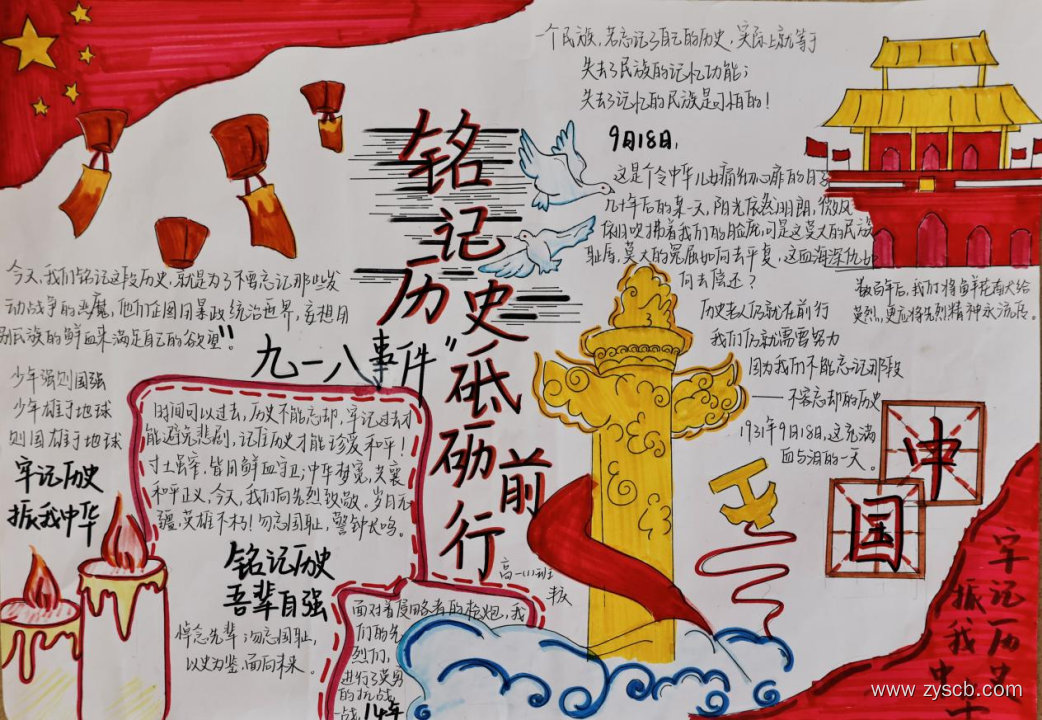 一个民族,若忘记了自己的历史,实际上就等于
失去了民族的记忆功能;
失去了记忆的民族是可怕的!
9月18日,
这是个令中华儿女痛彻心扉的日子
几十年后的某一天,阳光依然明朗,微风
依旧吹拂着我们的脸庞,可是这莫大的民族
耻辱,莫大的冤屈如何去平复,这血海深仇如
何去偿还?
历史老人仍就在前行
我们仍就需要努力
因为我们不能忘记那段
——不容忘却的历史
1931年9月18日,这充满
血与泪的一天。
数百年后,我们将鲜花奉献给
英烈,更应将先烈精神永流展。
铭记历史砥砺前行
"九一八事件"
今天,我们铭记这段历史,就是为了不要忘记那些发
动战争的恶魔,他们企图用暴政统治世界,妄想用
别民族的鲜血来满足自己的欲望!
少年强则国强
少年雄于地球
则国雄于地球
牢记历史
振我中华
时间可以过去,历史不能忘却,牢记过去才
能避免悲剧,记住历史才能珍爱和平!
寸土虽窄,皆用鲜血守卫;中华梦宽,共襄
和平正义,今天,我们向先烈致敬。岁月无
疆,英雄不朽!勿忘国耻,警钟长鸣。
铭记历史
吾辈自强
悼念先辈,勿忘国耻,
以史为鉴,面向未来。
高一(1)班
面对着侵略者的枪炮,我
们的先
烈们,
进行了英勇
的抗战
一战14年
中
国
牢记历史
振我中
www.zyscb.com